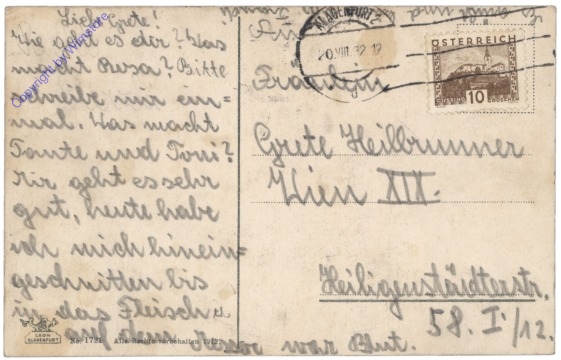 Liebe Grete!
Wie geht es dir? Was
macht Rusa? Bitte
schreibe mir ein=
mal. Was macht
Tante und Toni?
Mir geht es sehr
gut, heute habe
ich mich hinein=
geschnitten bis
in das Fleisch u.
auf dem Messer war Blut.
An
Fräulein
Grete Heilbrunner
Wien XIX.
Heiligenstädterstr.
58. I/12.
KLAGENFURT 2
20.VIII.32.12
d
ÖSTERREICH
10
GROSCHEN
LEON
KLAGENFURT
No. 1721 Alle Rechte vorbehalten 1912
Copyright by